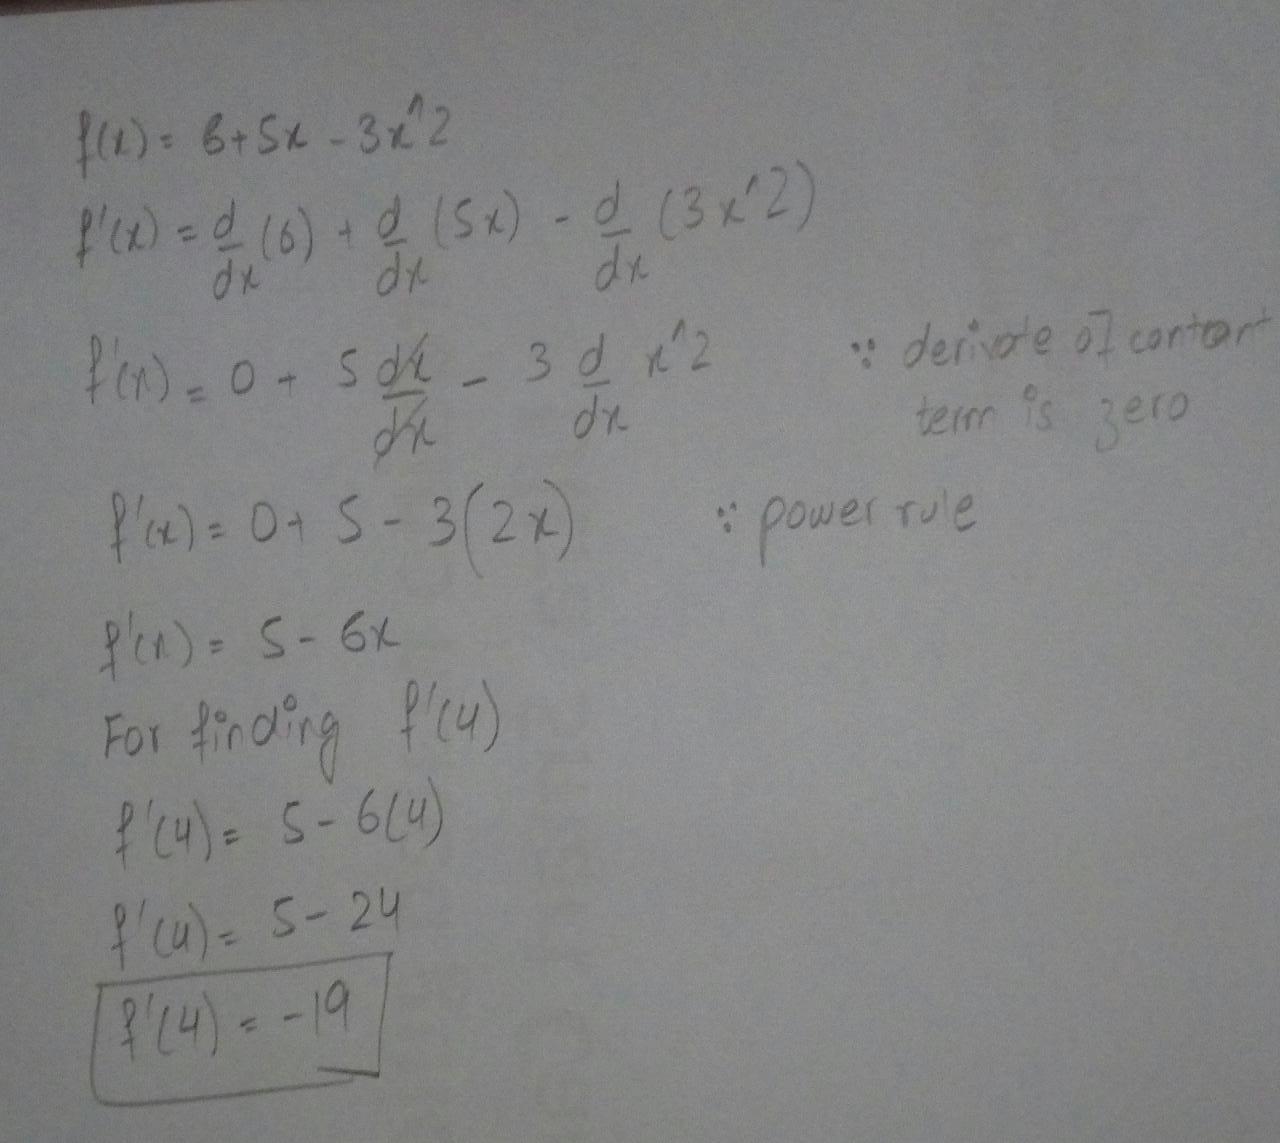 f(x) = 6+5x - 3x^2
f'(x) = d/dx (6) + d/dx (5x) - d/dx (3x^2)
f'(x) = 0 + 5 dx/dx - 3 d/dx x^2 ∵ derivate of contant
term is zero
f'(x) = 0+ 5 - 3(2x) ∵ power rule
f'(x) = 5 - 6x
For finding f'(4)
f'(4) = 5 - 6(4)
f'(4) = 5 - 24
f'(4) = -19